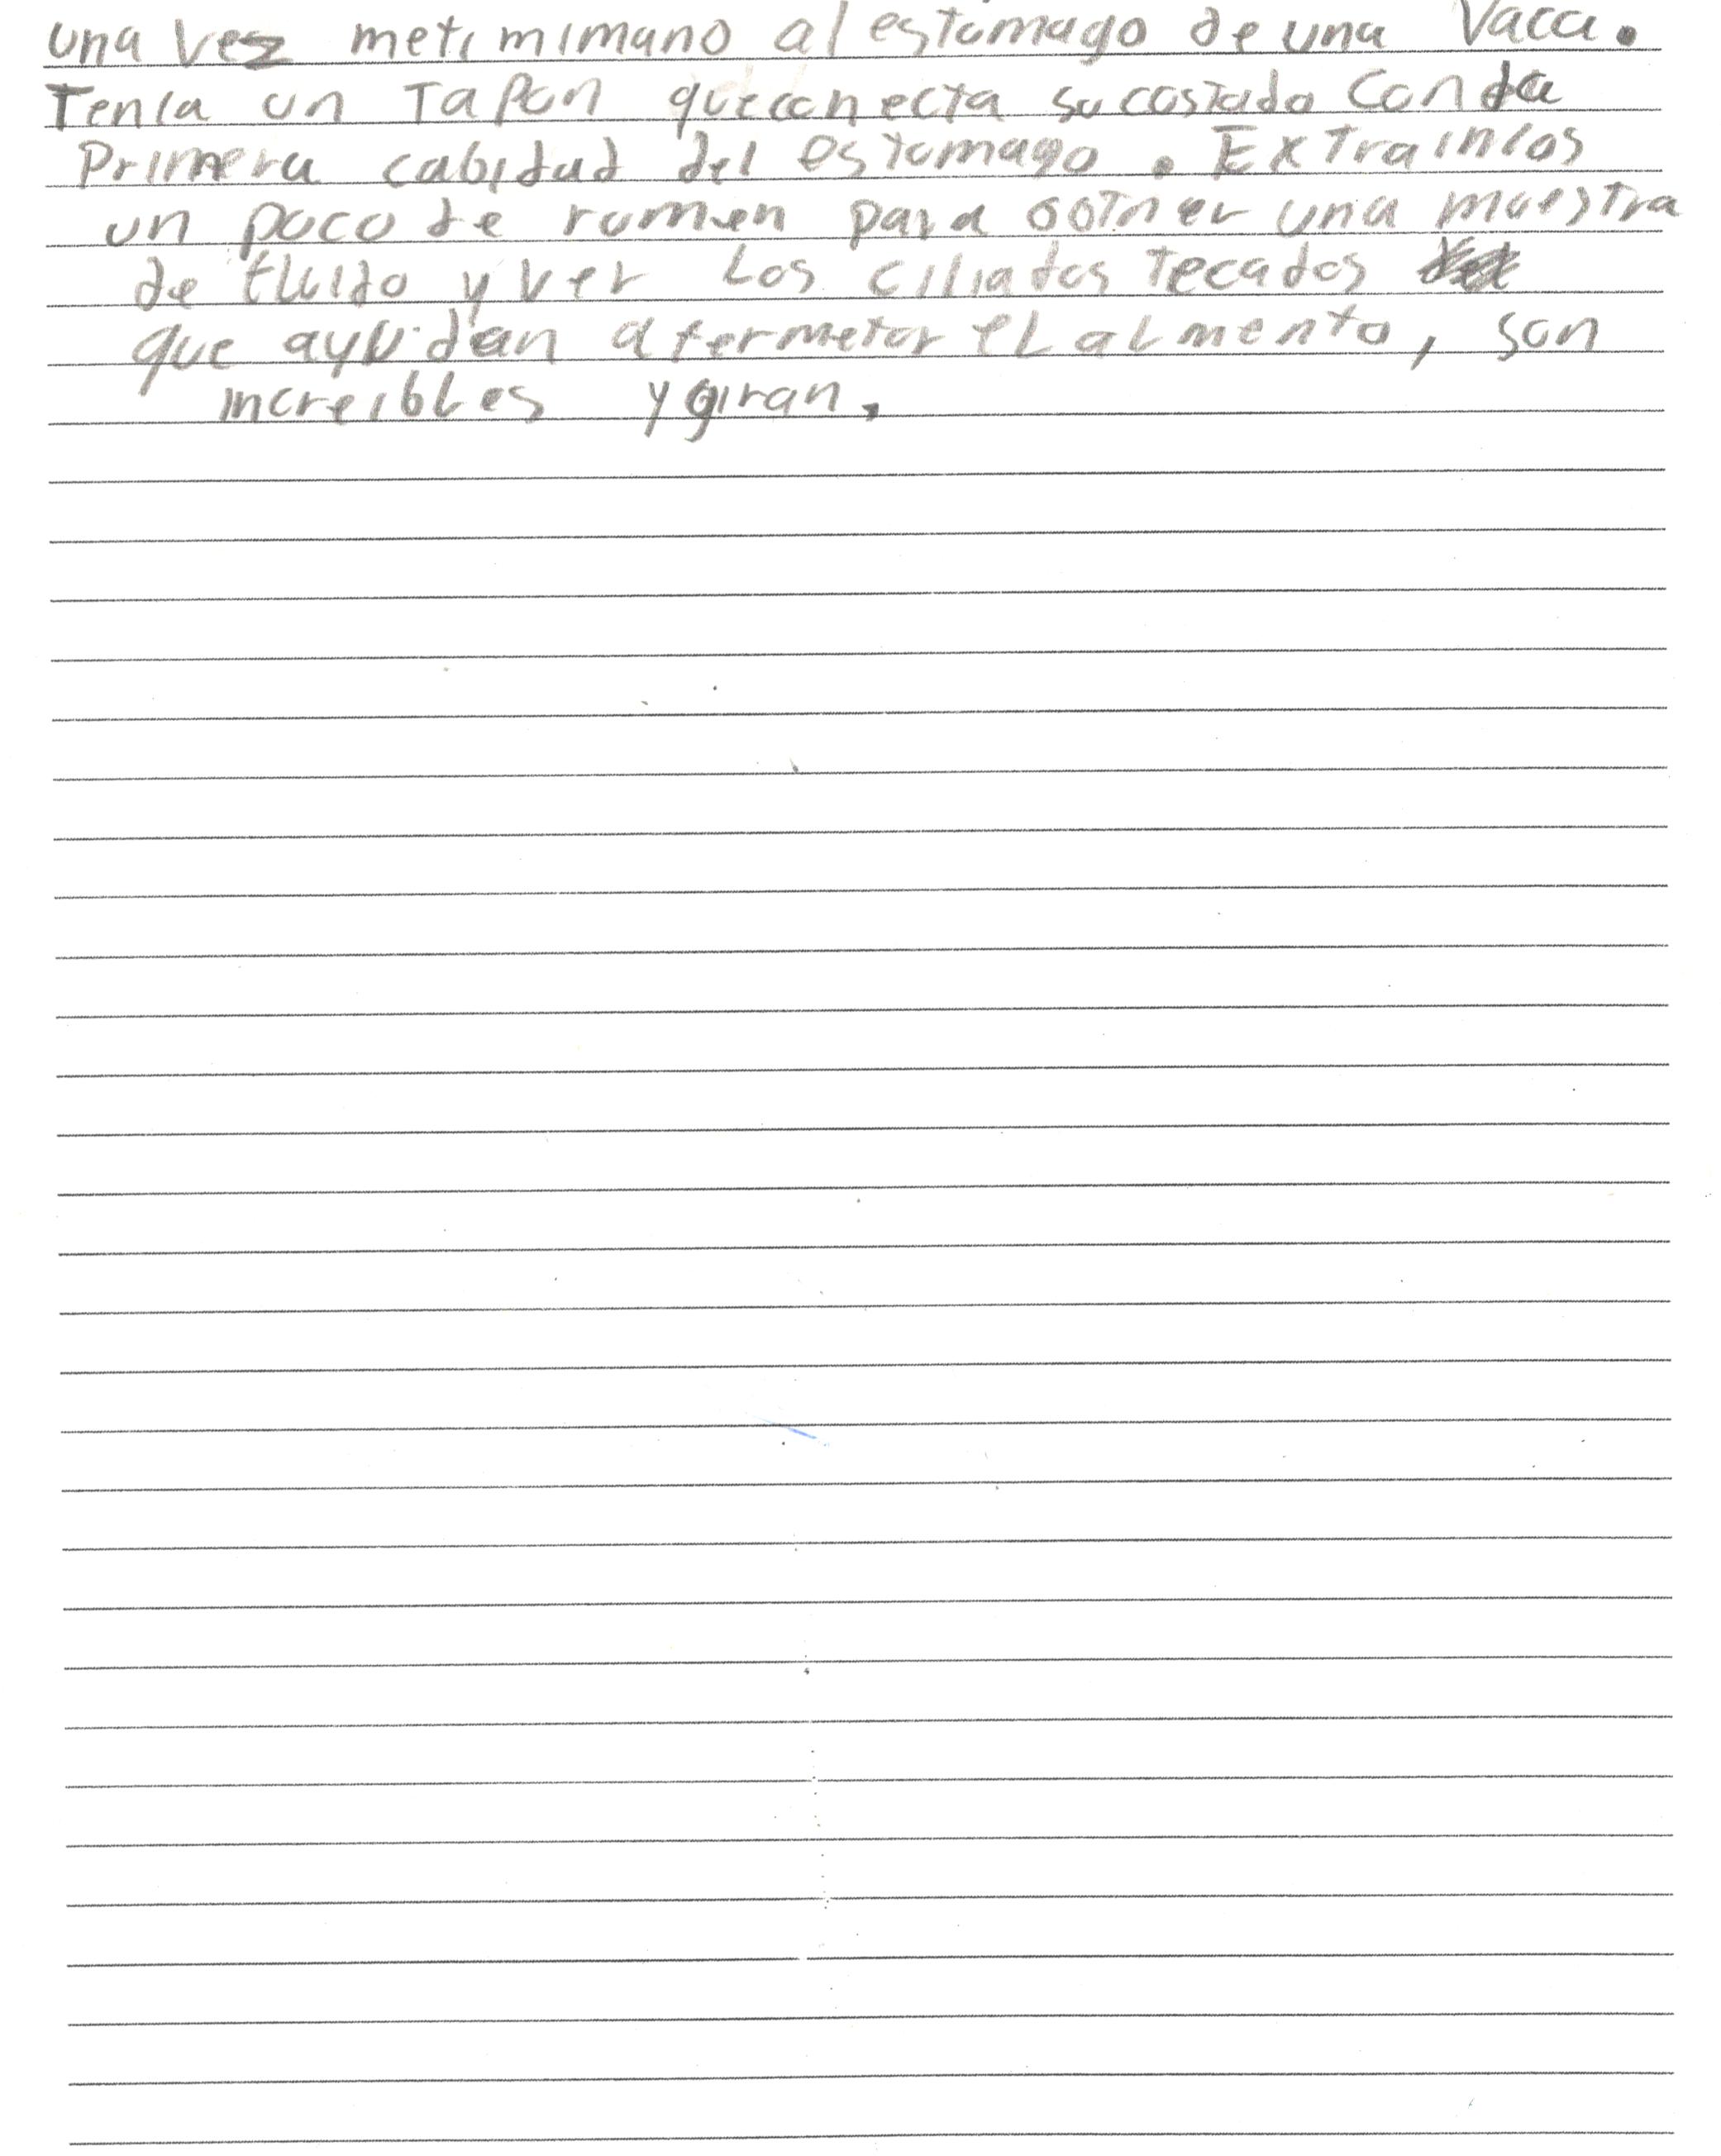 una vez metí mi mano al estómago de una Vaca.
Tenía un Tapon que conecta su costado con la
Primera cabidad del estomago. Extraimos
un poco de rumen para obtner una muestra
de fluido y ver Los ciliados Tecados
que ayudan a fermetar el almento, son
increibles y giran.